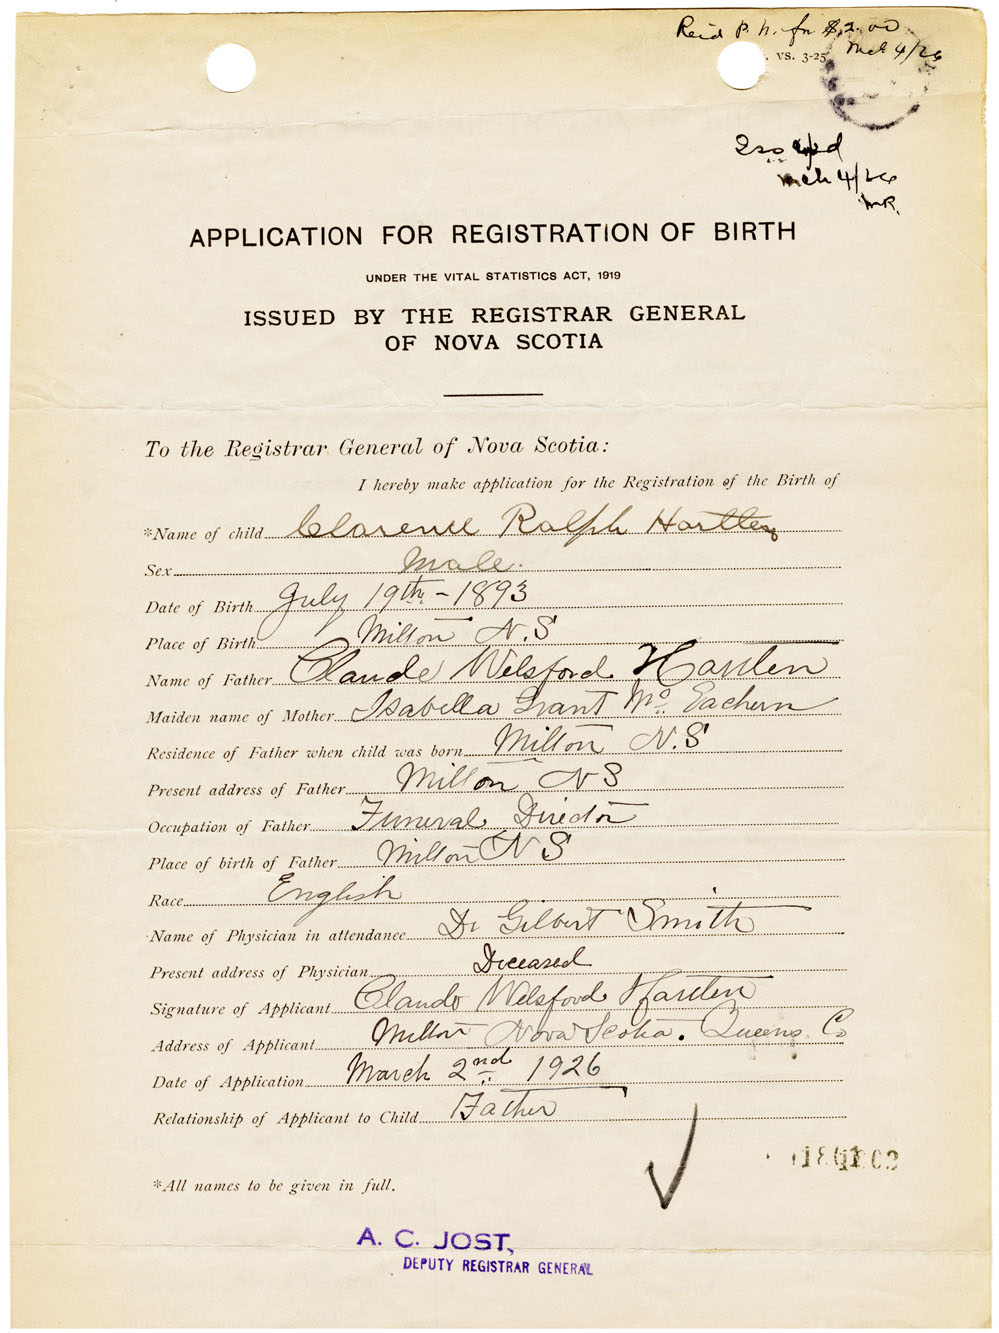 Recd P. N. for $2.00
. VS. 3-25 Mch 4/26
Mch 4/26
MR.
APPLICATION FOR REGISTRATION OF BIRTH
UNDER THE VITAL STATISTICS ACT, 1919
ISSUED BY THE REGISTRAR GENERAL
OF NOVA SCOTIA
To the Registrar General of Nova Scotia:
I hereby make application for the Registration of the Birth of
*Name of child Clarence Ralph Hartlen
Sex Male.
Date of Birth July 19th - 1893
Place of Birth Milton N.S
Name of Father Claude Welsford Hartlen
Maiden name of Mother Isabella Grant McEachern
Residence of Father when child was born Milton N.S
Present address of Father Milton NS
Occupation of Father Funeral Director
Place of birth of Father Milton NS
Race English
Name of Physician in attendance Dr Gilbert Smith
Present address of Physician Deceased
Signature of Applicant Claude Welsford Hartlen
Address of Applicant Milton Nova Scotia. Queens Co
Date of Application March 2nd 1926
Relationship of Applicant to Child Father
*All names to be given in full.
A. C. JOST,
DEPUTY REGISTRAR GENERAL